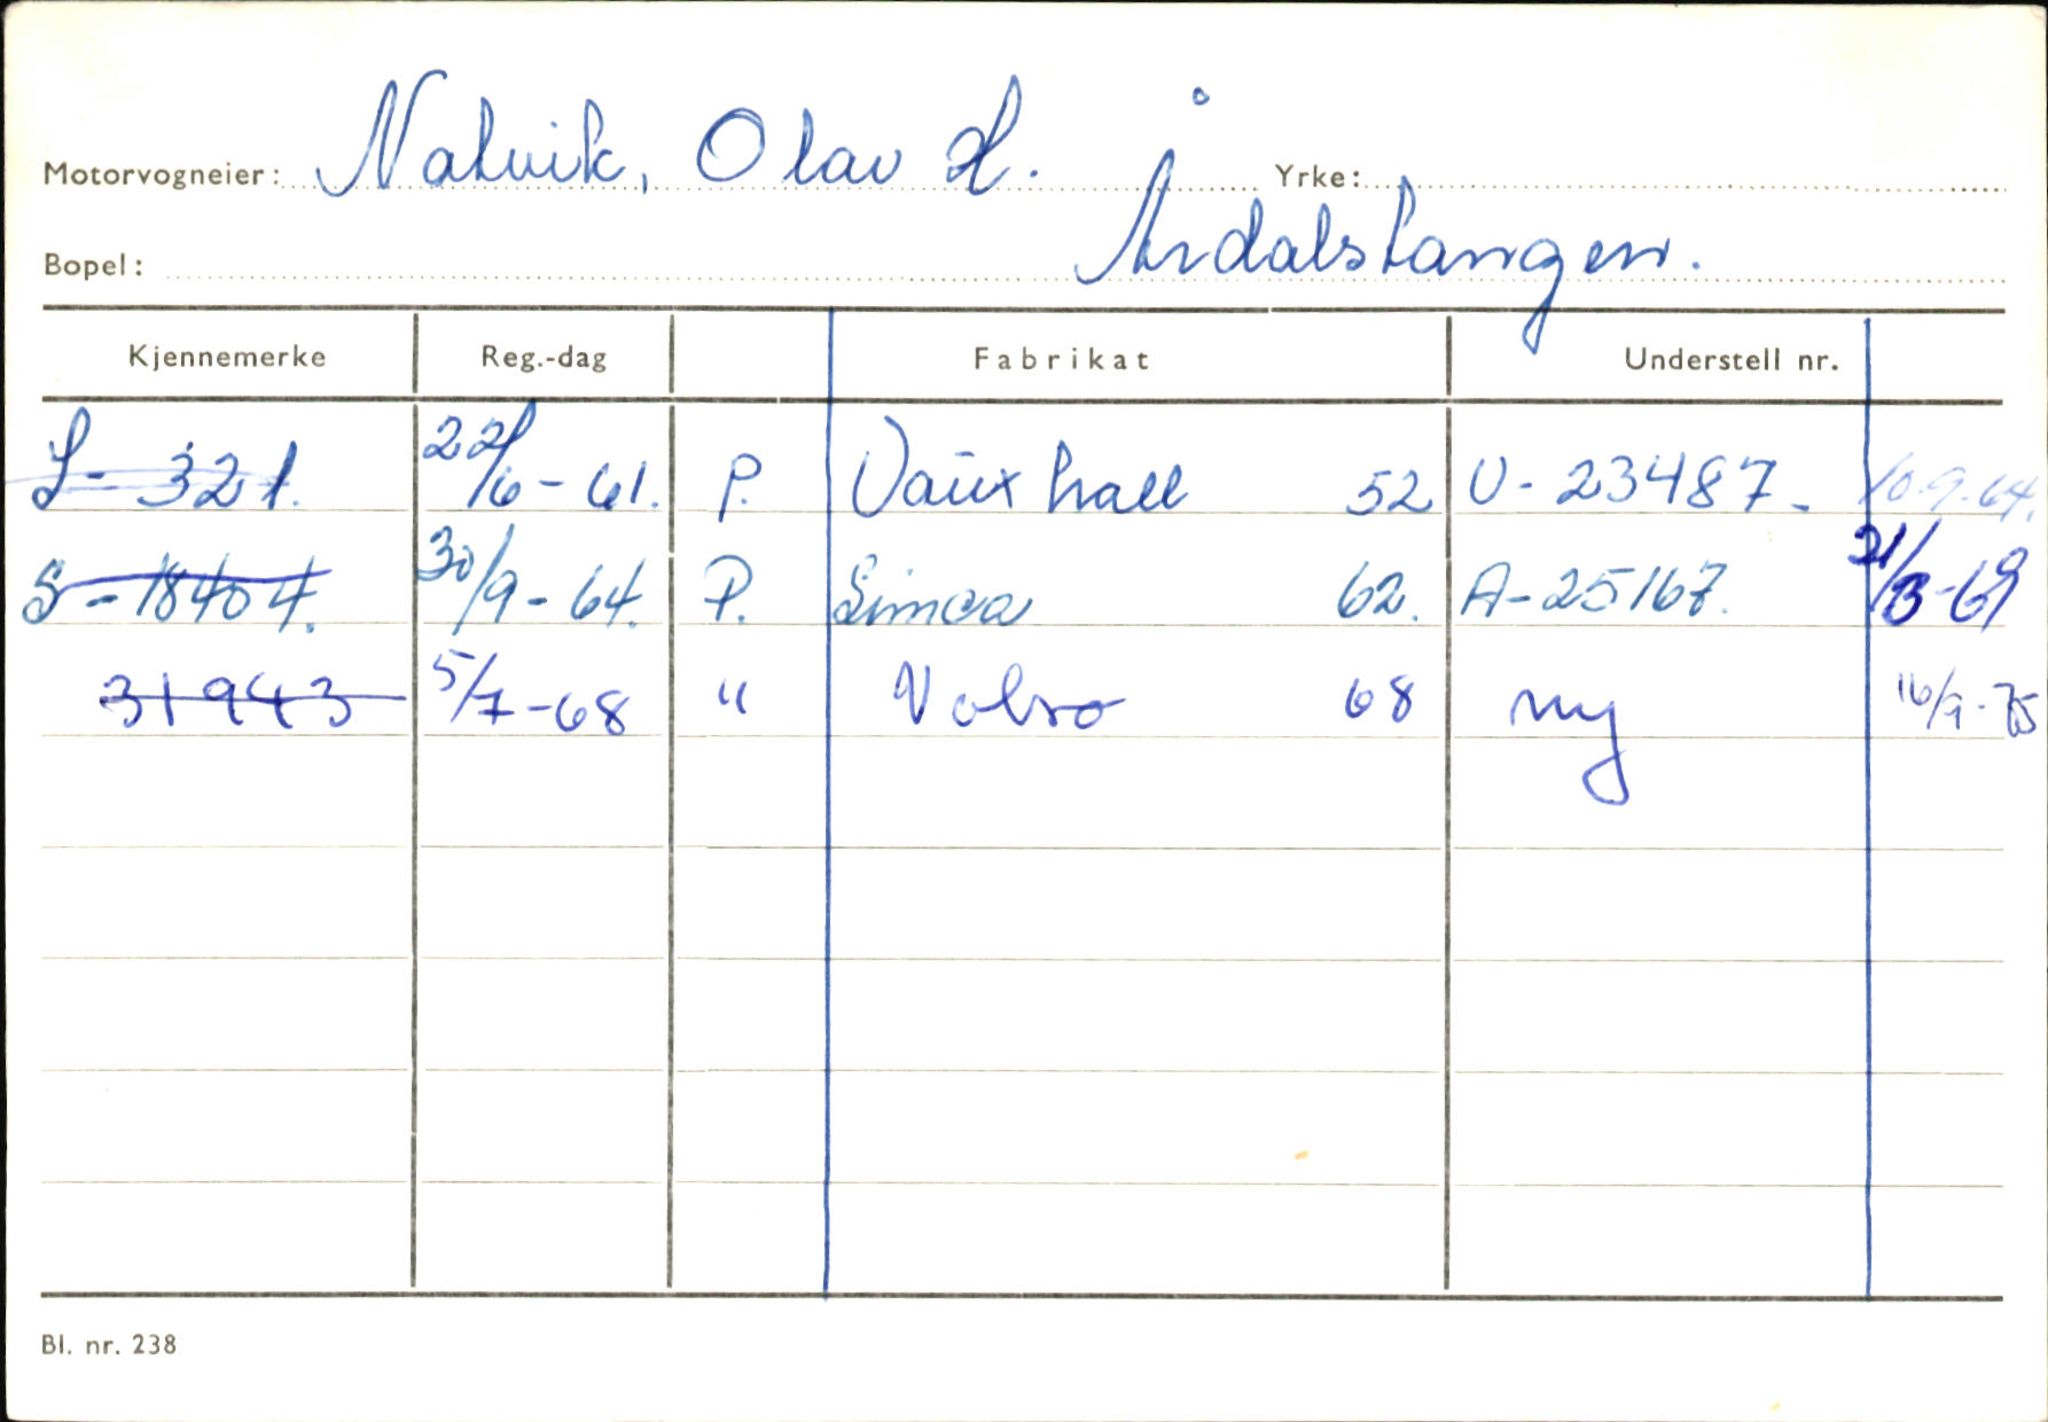 Motorvogneier: Natvik, Olav H. Yrke:
Bopel: Årdalstangen.
Kjennemerke Reg.-dag Fabrikat Understell nr.
S-321. 22/6-61. P. Vauxhall 52 U-23487- 10.9.64.
S-18404. 30/9-64. P. Simca 62. A-25167. 21/3-69
31943 5/7-68 " Volvo 68 ny 16/9-75
Bl. nr. 238